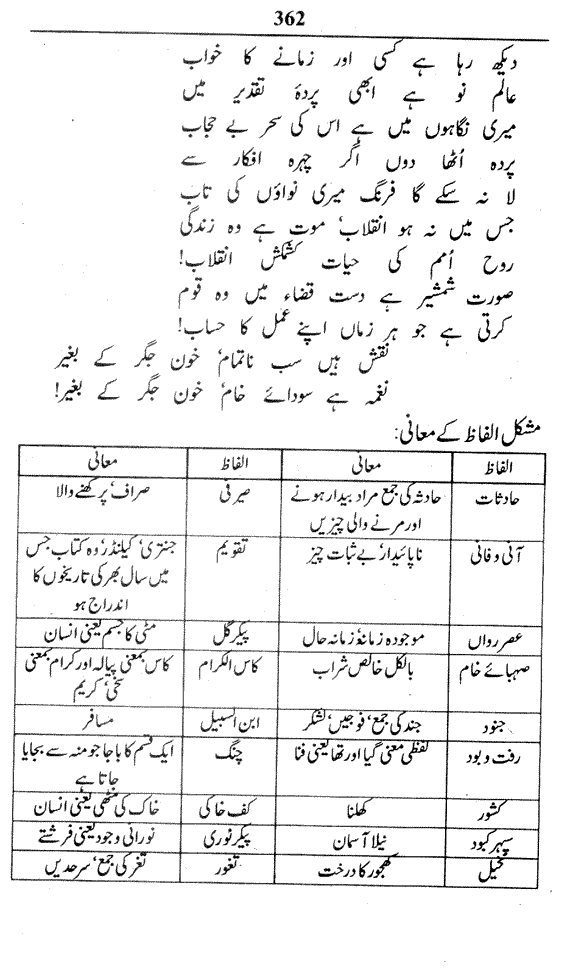 362
دیکھ رہا ہے کسی اور زمانے کا خواب
عالم نو ہے ابھی پردۂ تقدیر میں
میری نگاہوں میں ہے اس کی سحر بے حجاب
پردہ اُٹھا دوں اگر چہرہ افکار سے
لا نہ سکے گا فرنگ میری نواؤں کی تاب
جس میں نہ ہو انقلاب، موت ہے وہ زندگی
روح اُمم کی حیات کشمکش انقلاب!
صورت شمشیر ہے دست قضاء میں وہ قوم
کرتی ہے جو ہر زماں اپنے عمل کا حساب!
نقش ہیں سب ناتمام، خون جگر کے بغیر
نغمہ ہے سودائے خام، خون جگر کے بغیر!
مشکل الفاظ کے معانی:
الفاظ معانی الفاظ معانی
حادثات حادثہ کی جمع مراد بیدار ہونے صیرفی صراف، پرکھنے والا
اور مرنے والی چیزیں
آنی و فانی ناپائیدار، بے ثبات چیز تقویم جنتری، کیلنڈر، وہ کتاب جس
میں سال بھر کی تاریخوں کا
اندراج ہو
عصر رواں موجودہ زمانہ، زمانہ حال پیکر گل مٹی کا جسم یعنی انسان
صہبائے خام بالکل خالص شراب کاس الکرام کاس بمعنی پیالہ اور کرام بمعنی
سخی، کریم
جنود جند کی جمع، فوجیں، لشکر ابن السبیل مسافر
رفت و بود لفظی معنی گیا اور تھا یعنی فنا چنگ ایک قسم کا باجا جو منہ سے بجایا
جاتا ہے
کشور کھلنا کف خاکی خاک کی مٹھی یعنی انسان
سپہر کبود نیلا آسمان پیکر نوری نورانی وجود یعنی فرشتے
نخیل کھجور کا درخت تغور تغر کی جمع، سرحدیں